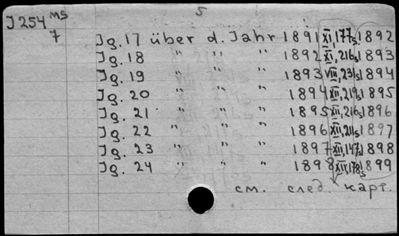 5
J 254 MS
7
Jg. 17 über d. Jahr 1891 XI, 177 s. 1892
Jg. 18 " " " 1892 XI, 216 s. 1893
Jg. 19 " " " 1893 VIII, 231 s. 1894
Jg. 20 " " " 1894 XII, 219 s. 1895
Jg. 21 " " " 1895 XII, 216 s. 1896
Jg. 22 " " " 1896 XII, 211 s. 1897
Jg. 23 " " " 1897 XII, 147 s. 1898
Jg. 24 " " " 1898 XII, 178 s. 1899
см. след. карт.